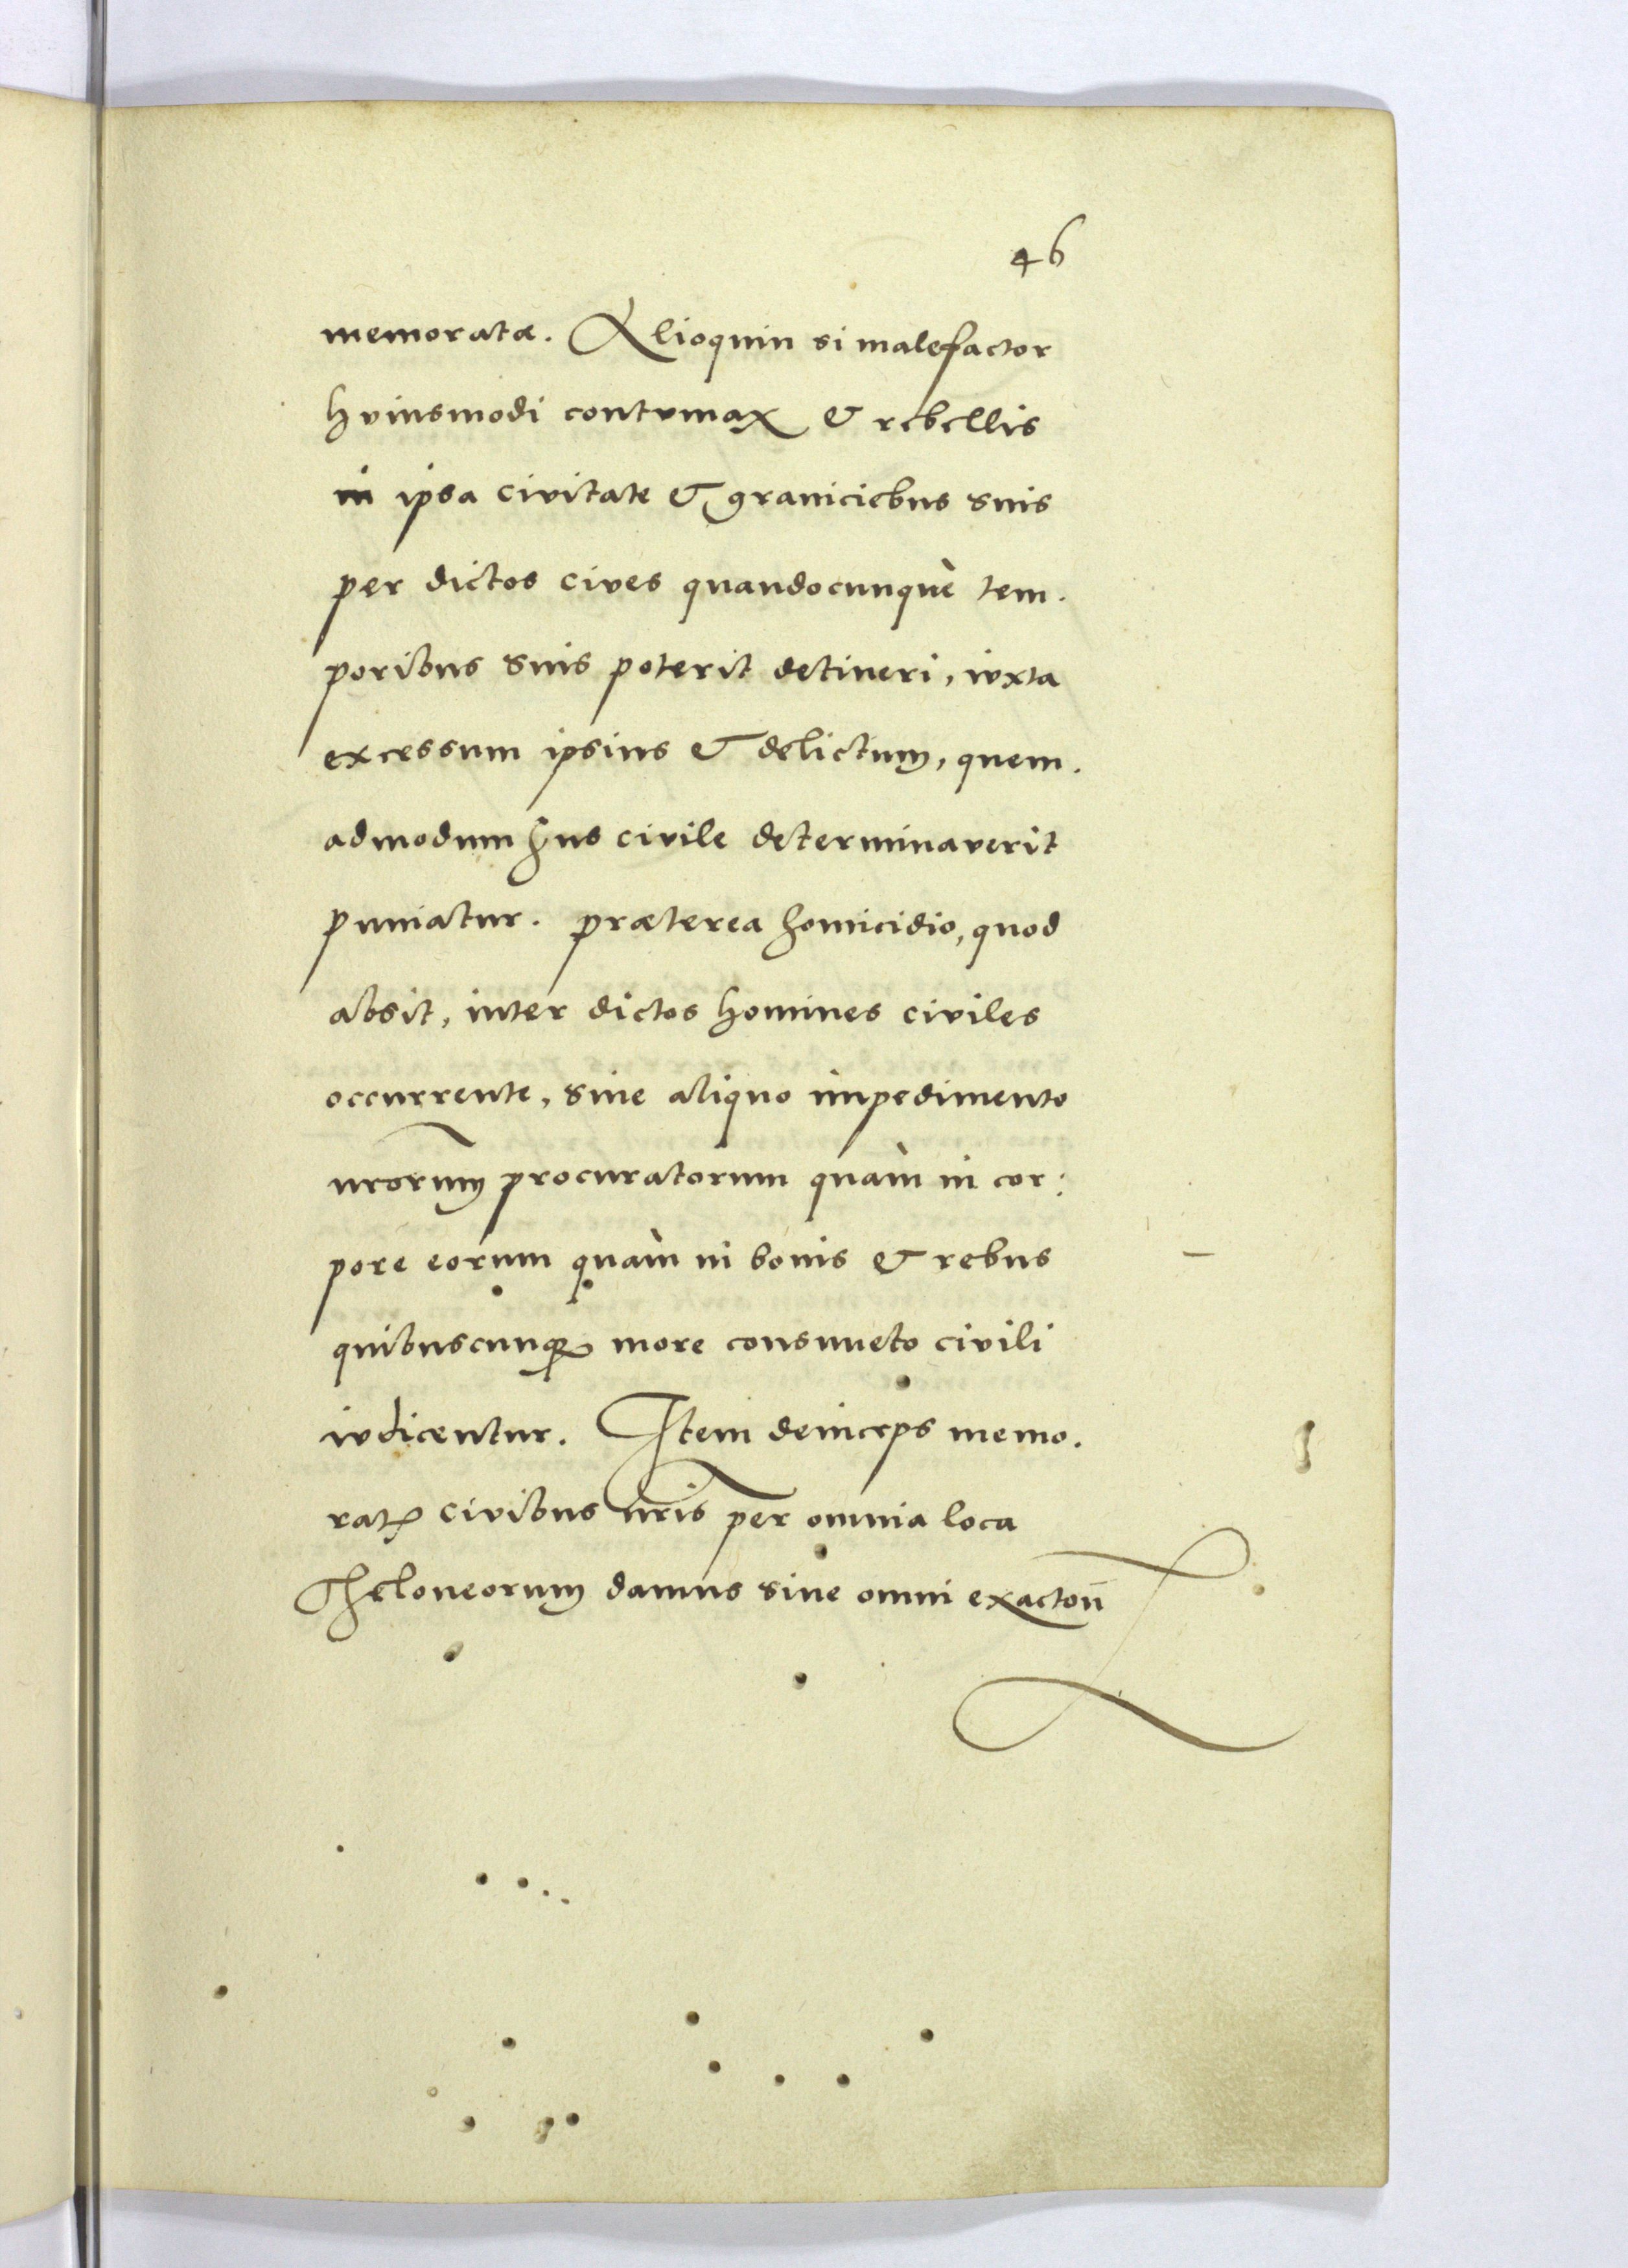 46
memoratæ. Alioquin si malefactor
hviusmodi contvmax & rebellis
in ipsa civitate & graniciebus suis
per dictos cives quandocunquè tem.
poribus suis poterit detineri, ivxta
excessum ipsius & delictum, quem.
admodum Jus civile determinaverit
puniatur. præterea homicidio, quod
absit, inter dictos homines civiles
occurrente, sine aliquo impedimento
nrorum procuratorum quàm in cor:
pore eorum quàm in bonis & rebus
quibuscunqꝫ more consuueto civili
ivdicentur. Item deinceps memo.
ratꝭ civibus nris per omnia loca
Theloneorum damus sine omni exactōn